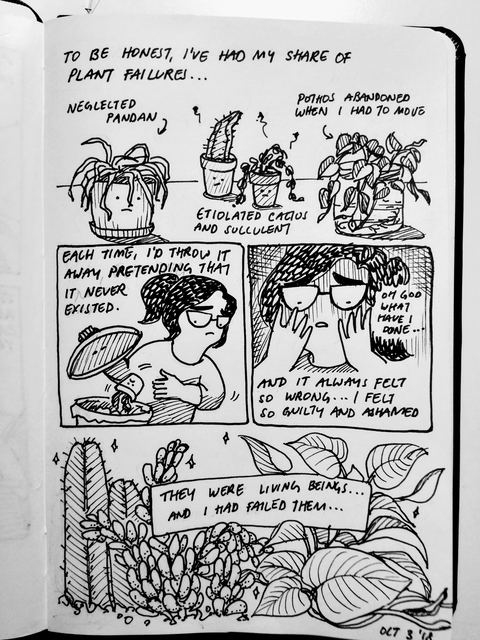 TO BE HONEST, I'VE HAD MY SHARE OF
PLANT FAILURES...
NEGLECTED
PANDAN
POTHOS ABANDONED
WHEN I HAD TO MOVE
ETIOLATED CACTUS
AND SUCCULENT
EACH TIME, I'D THROW IT
AWAY, PRETENDING THAT
IT NEVER
EXISTED.
OH GOD
WHAT
HAVE I
DONE...
AND IT ALWAYS FELT
SO WRONG... I FELT
SO GUILTY AND ASHAMED
THEY WERE LIVING BEINGS...
AND I HAD FAILED THEM...
OCT 3 '18